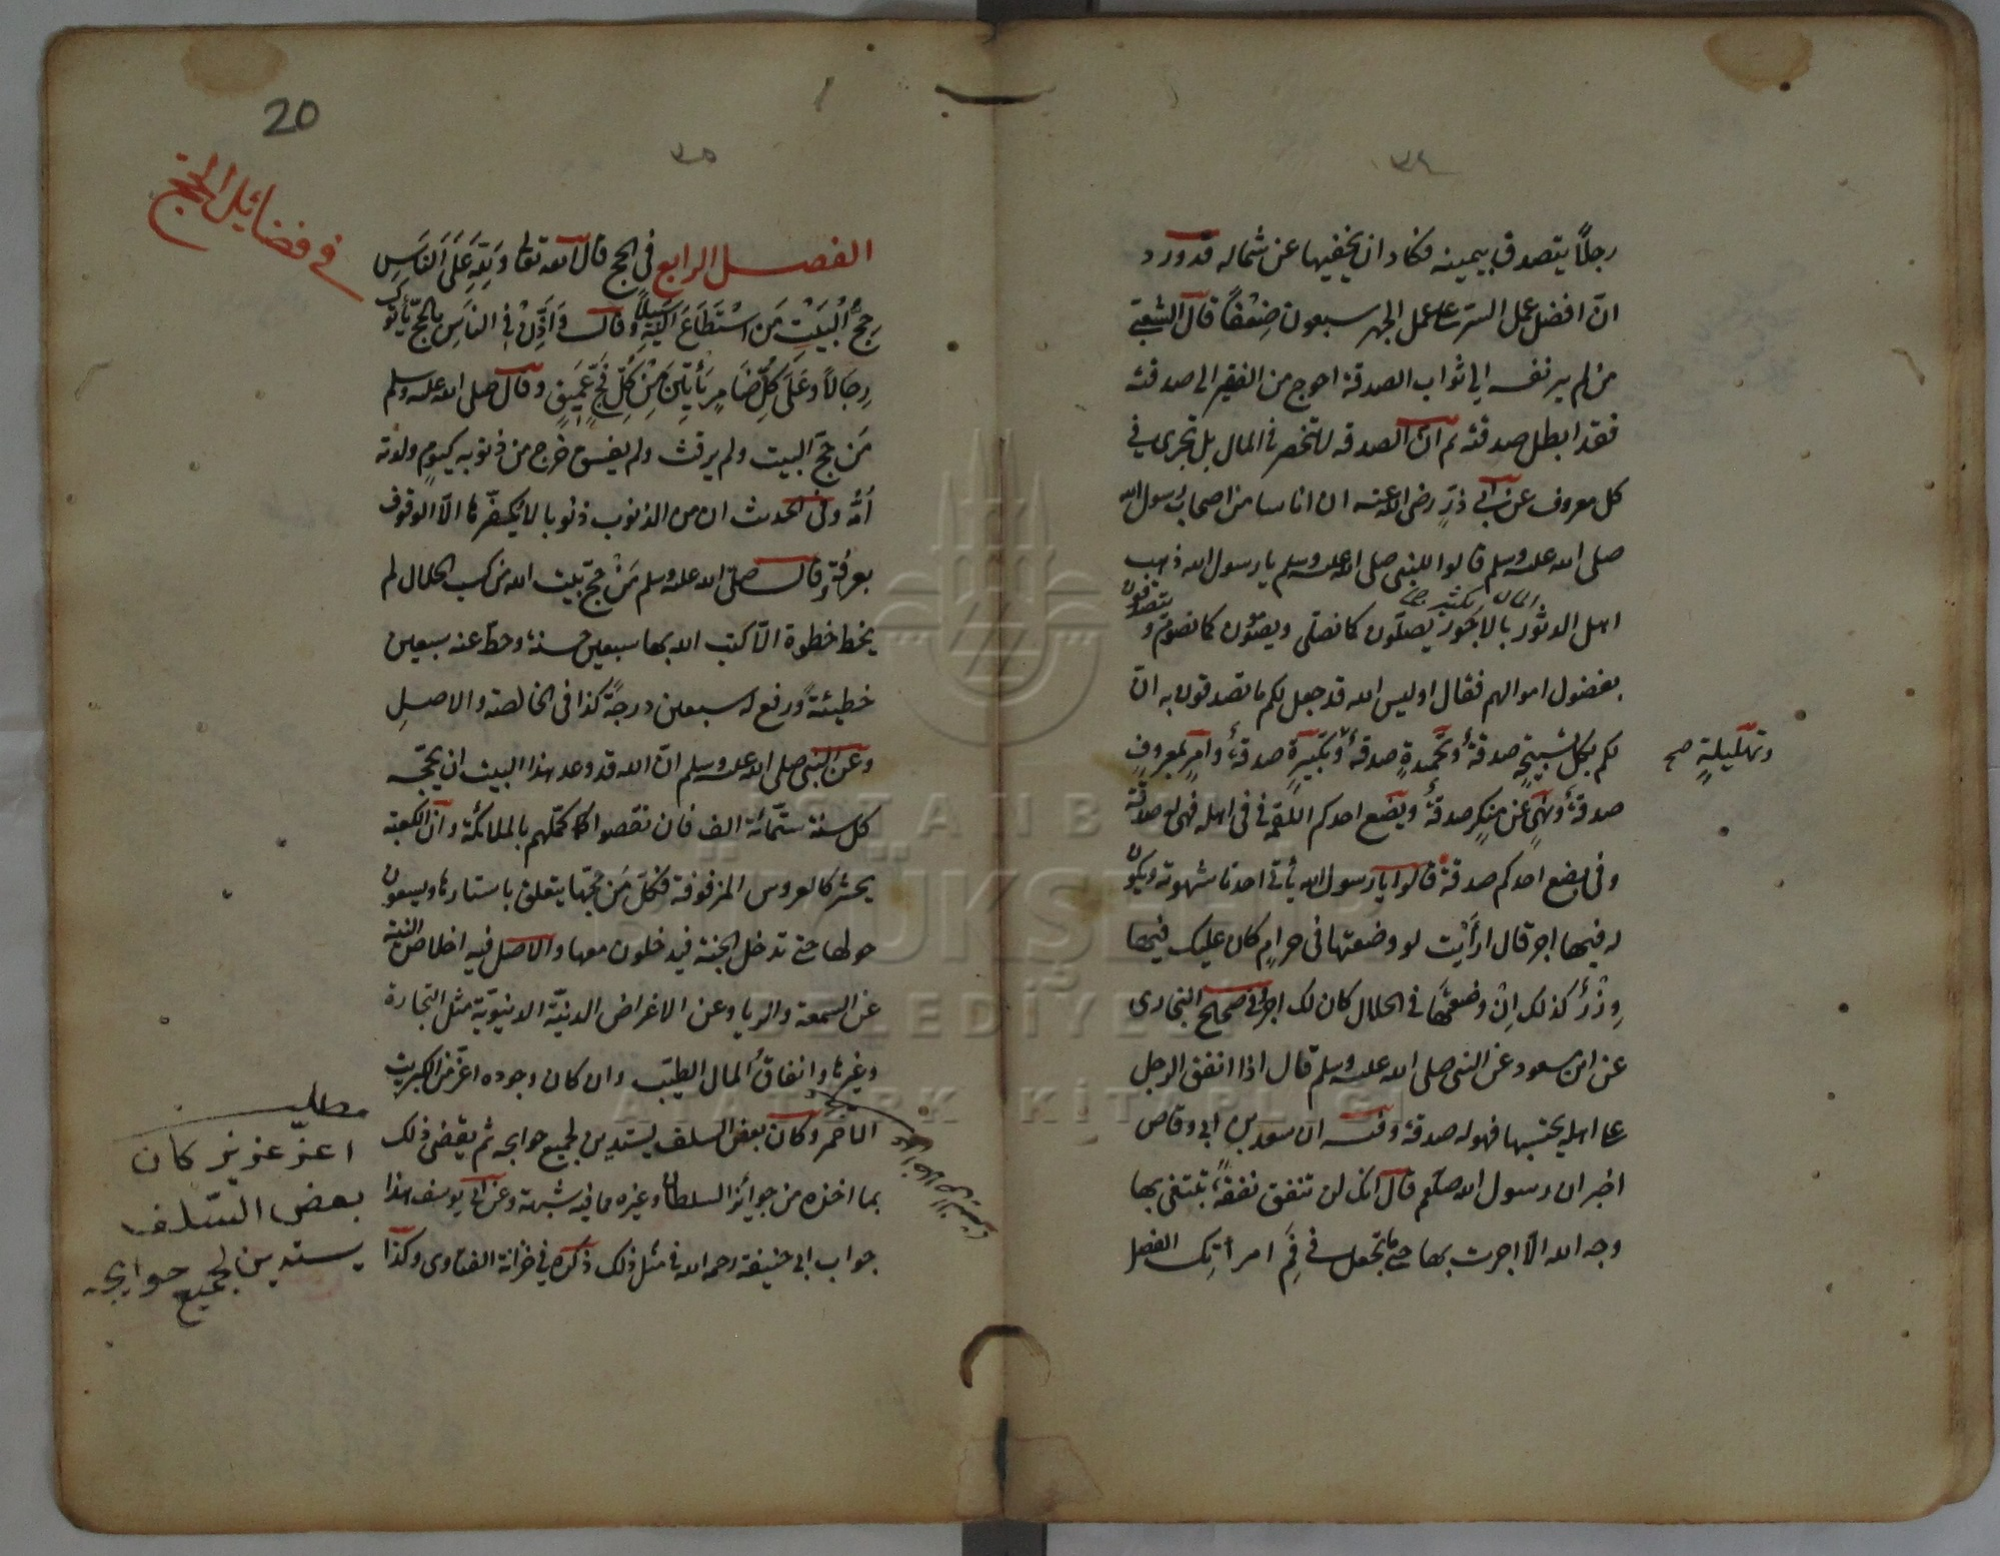 ٣٤
رجلاً يتصدق بيمينه فكاد ان يخفيها عن شماله قد ورد
انّ افضل عمل السّر على عمل الجهر سبعون ضِعْفاً قال الشعبيّ
من لم ير نفسه الى ثواب الصدقة احوج من الفقير الى صدقته
فقد ابطل صدقته ثم انّ الصدقة لا تنحصر في المال بل تجرى في
كل معروف عن ابى ذرٍّ رضى الله عنه ان اناسا من اصحاب رسول الله
صلى الله عليه وسلم قالوا للنبى صلى الله عليه وسلم يا رسول الله ذهب
اهل الدثور بالاجور يصلّون كما نصلى ويصومون كما نصوم و يتصدقون
بفضول اموالهم فقال اوليس الله قد جعل لكم ما تصدقون به انّ
لكم بكل تسبيحةٍ صدقةً وتحميدةٍ صدقةً وتكبيرةٍ صدقةً وامرٍ بمعروفٍ
وتهليلةٍ صح
صدقةً ونهىٍ عن منكرٍ صدقةً ويضع احدكم اللقمة فى فى اهله فهى له صدقة
وفى بضع احدكم صدقة قالوا يا رسول الله يأتى احدنا شهوته ويكون
له فيها اجر قال ارأيت لو وضعتها فى حرامٍ كان عليك فيها
وِزْرٌ كذلك اِنْ وضعتَها فى الحلال كان لك اجرٌ وفى صحيح البخارى
عن ابن مسعود عن النبى صلى الله عليه وسلم قال اذا انفق الرجل
على اهله يحتسبها فهو له صدقة وفيه ان سعد بن ابى وقاص
اخبر ان رسول الله صلعم قال انك لن تنفق نفقةً تبتغى بها
وجه الله الّا اجرت بها حتى ما تجعل فى فَمِ امرأتِك الفصل
20
٣٥
فى فضائل الحجّ
الفصل الرابع فى الحج قال الله تعالى وَلِلّهِ عَلَى النَّاسِ
حِجُّ الْبَيْتِ مَنِ اسْتَطَاعَ اِلَيْهِ سَبِيلاً وقال وَاَذِّنْ فِى النَّاسِ بِالْحَجِّ يَأْتُوكَ
رِجَالاً وَعَلَى كُلِّ ضَامِرٍ يَأْتِينَ مِنْ كُلِّ فَجٍّ عَمِيقٍ وقال صلى الله عليه وسلم
مَن حجّ البيت ولم يرفث ولم يفسق خرج من ذنوبه كيومٍ ولدته
اُمّه وفى الحديث ان من الذنوب ذنوبا لا يكفّرها الّا الوقوف
بعرفة وقال صلى الله عليه وسلم مَنْ حجّ بيت الله من كسب الحلال لم
يخط خطوة الّا كتب الله بها سبعين حسنة وحطّ عنه سبعين
خطيئةً ورفع له سبعين درجةً كذا فى الخالصة والاصلِ
وعن النبى صلى الله عليه وسلم انّ الله قد وعد هذا البيت ان يحجّه
كل سنة ستّمائة الف فان نقصوا كمّلهم بالملائكة وانّ الكعبة
يحشر كالعروس المزفوفة فكلّ مَن حجّها يتعلق باستارها ويسعون
حولها حتى تدخل الجنة فيدخلون معها والاصل فيه اخلاص النية
عن السمعة والريا وعن الاغراض الدنيّة الدنيويّة مثل التجارة
وغيرها وانفاقُ المال الطيّب وان كان وجوده اعزّ من الكبريت
الاحمر وكان بعض السلف يستدين لجميع حوايجه ثم يقضى ذلك
بما اخذه من جوائز السلطان وغيره مما فيه شبهة وعن ابى يوسف هذا
جواب ابى حنيفة رحمه الله فى مثل ذلك ذكره فى خزانة الفتاوى وكذا
مطلب
اعزّ عزيز كان
بعض السّلف
يستدين لجميع حوايجه
İSTANBUL
BÜYÜKŞEHİR
BELEDİYESİ
ATATÜRK KİTAPLIĞI